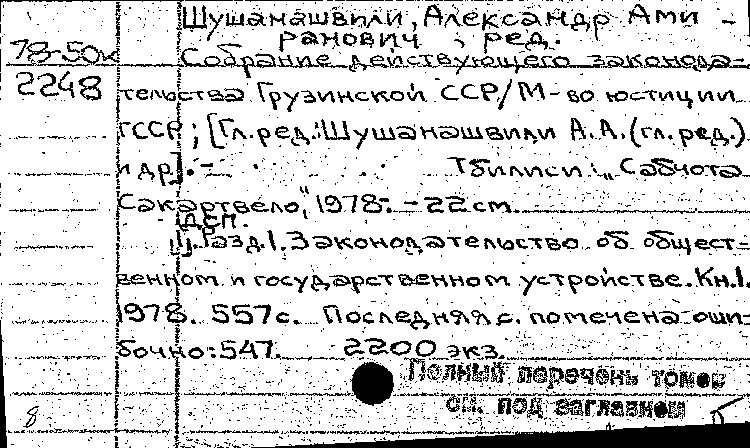 Шушанашвили, Александр Ами-
ранович, ред.
78-50к Собрание действующего законода-
2248 тельства Грузинской ССР/М-во юстиции
ГССР; [Гл.ред.: Шушанашвили А.А.(гл.ред.)
и др]. - Тбилиси: „Сабчота
Сакартвело", 1978. - 22 см.
ДСП.
Т. Разд.1. Законодательство об общест-
венном и государственном устройстве. Кн.1.
1978. 557 с. Последняя с. помечена оши-
бочно: 547. 2200 экз.
Полный перечень томов
см. под заглавием
8